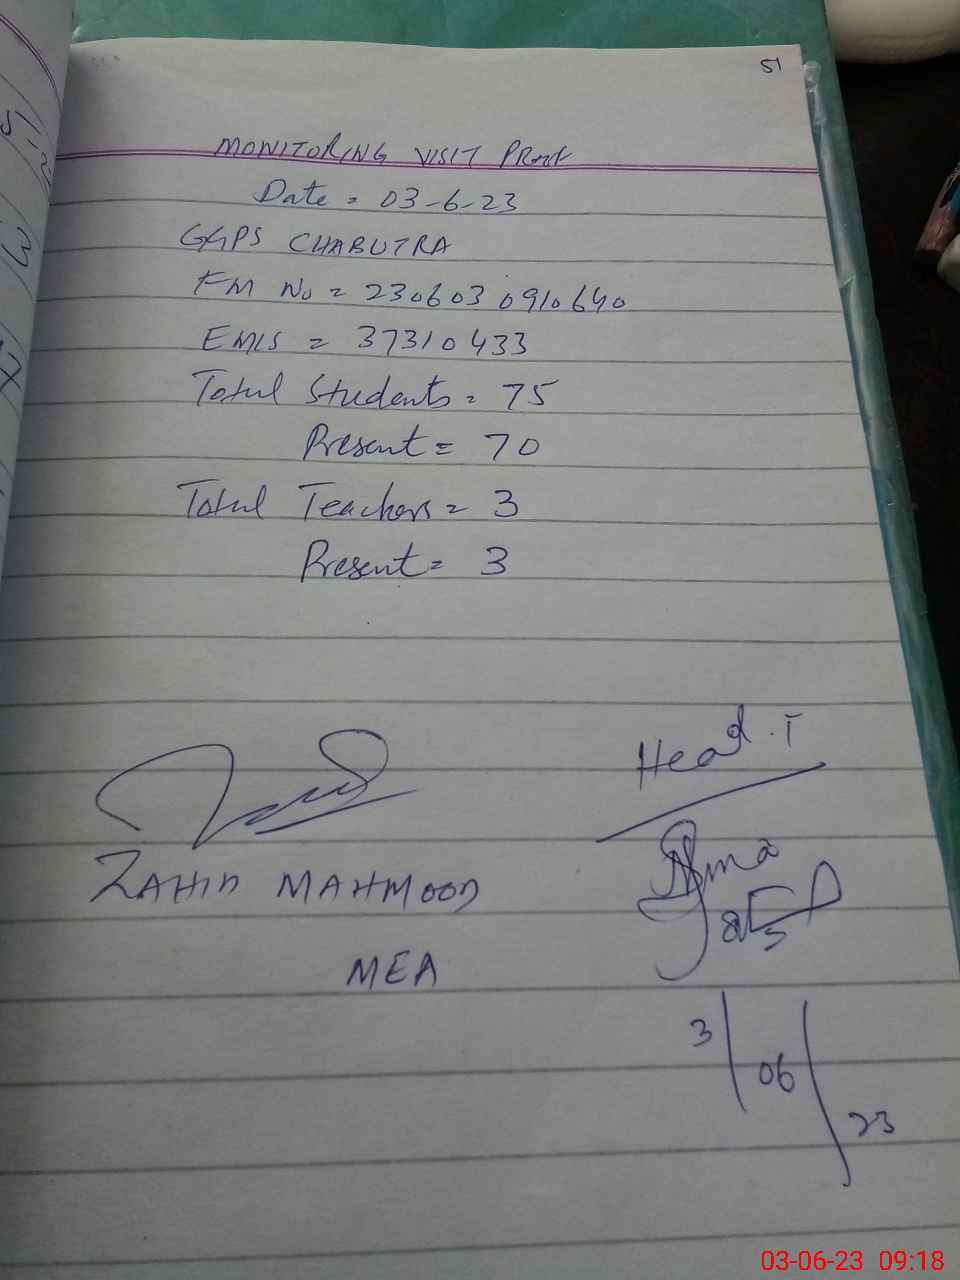 51
MONITORING VISIT PROOF
Date = 03-6-23
GGPS CHABUTRA
FM No = 230603 0910640
EMIS = 37310433
Total Students = 75
Present = 70
Total Teachers = 3
Present = 3
Head.T
ZAHID MAHMOOD
MEA
3/06/23
03-06-23 09:18